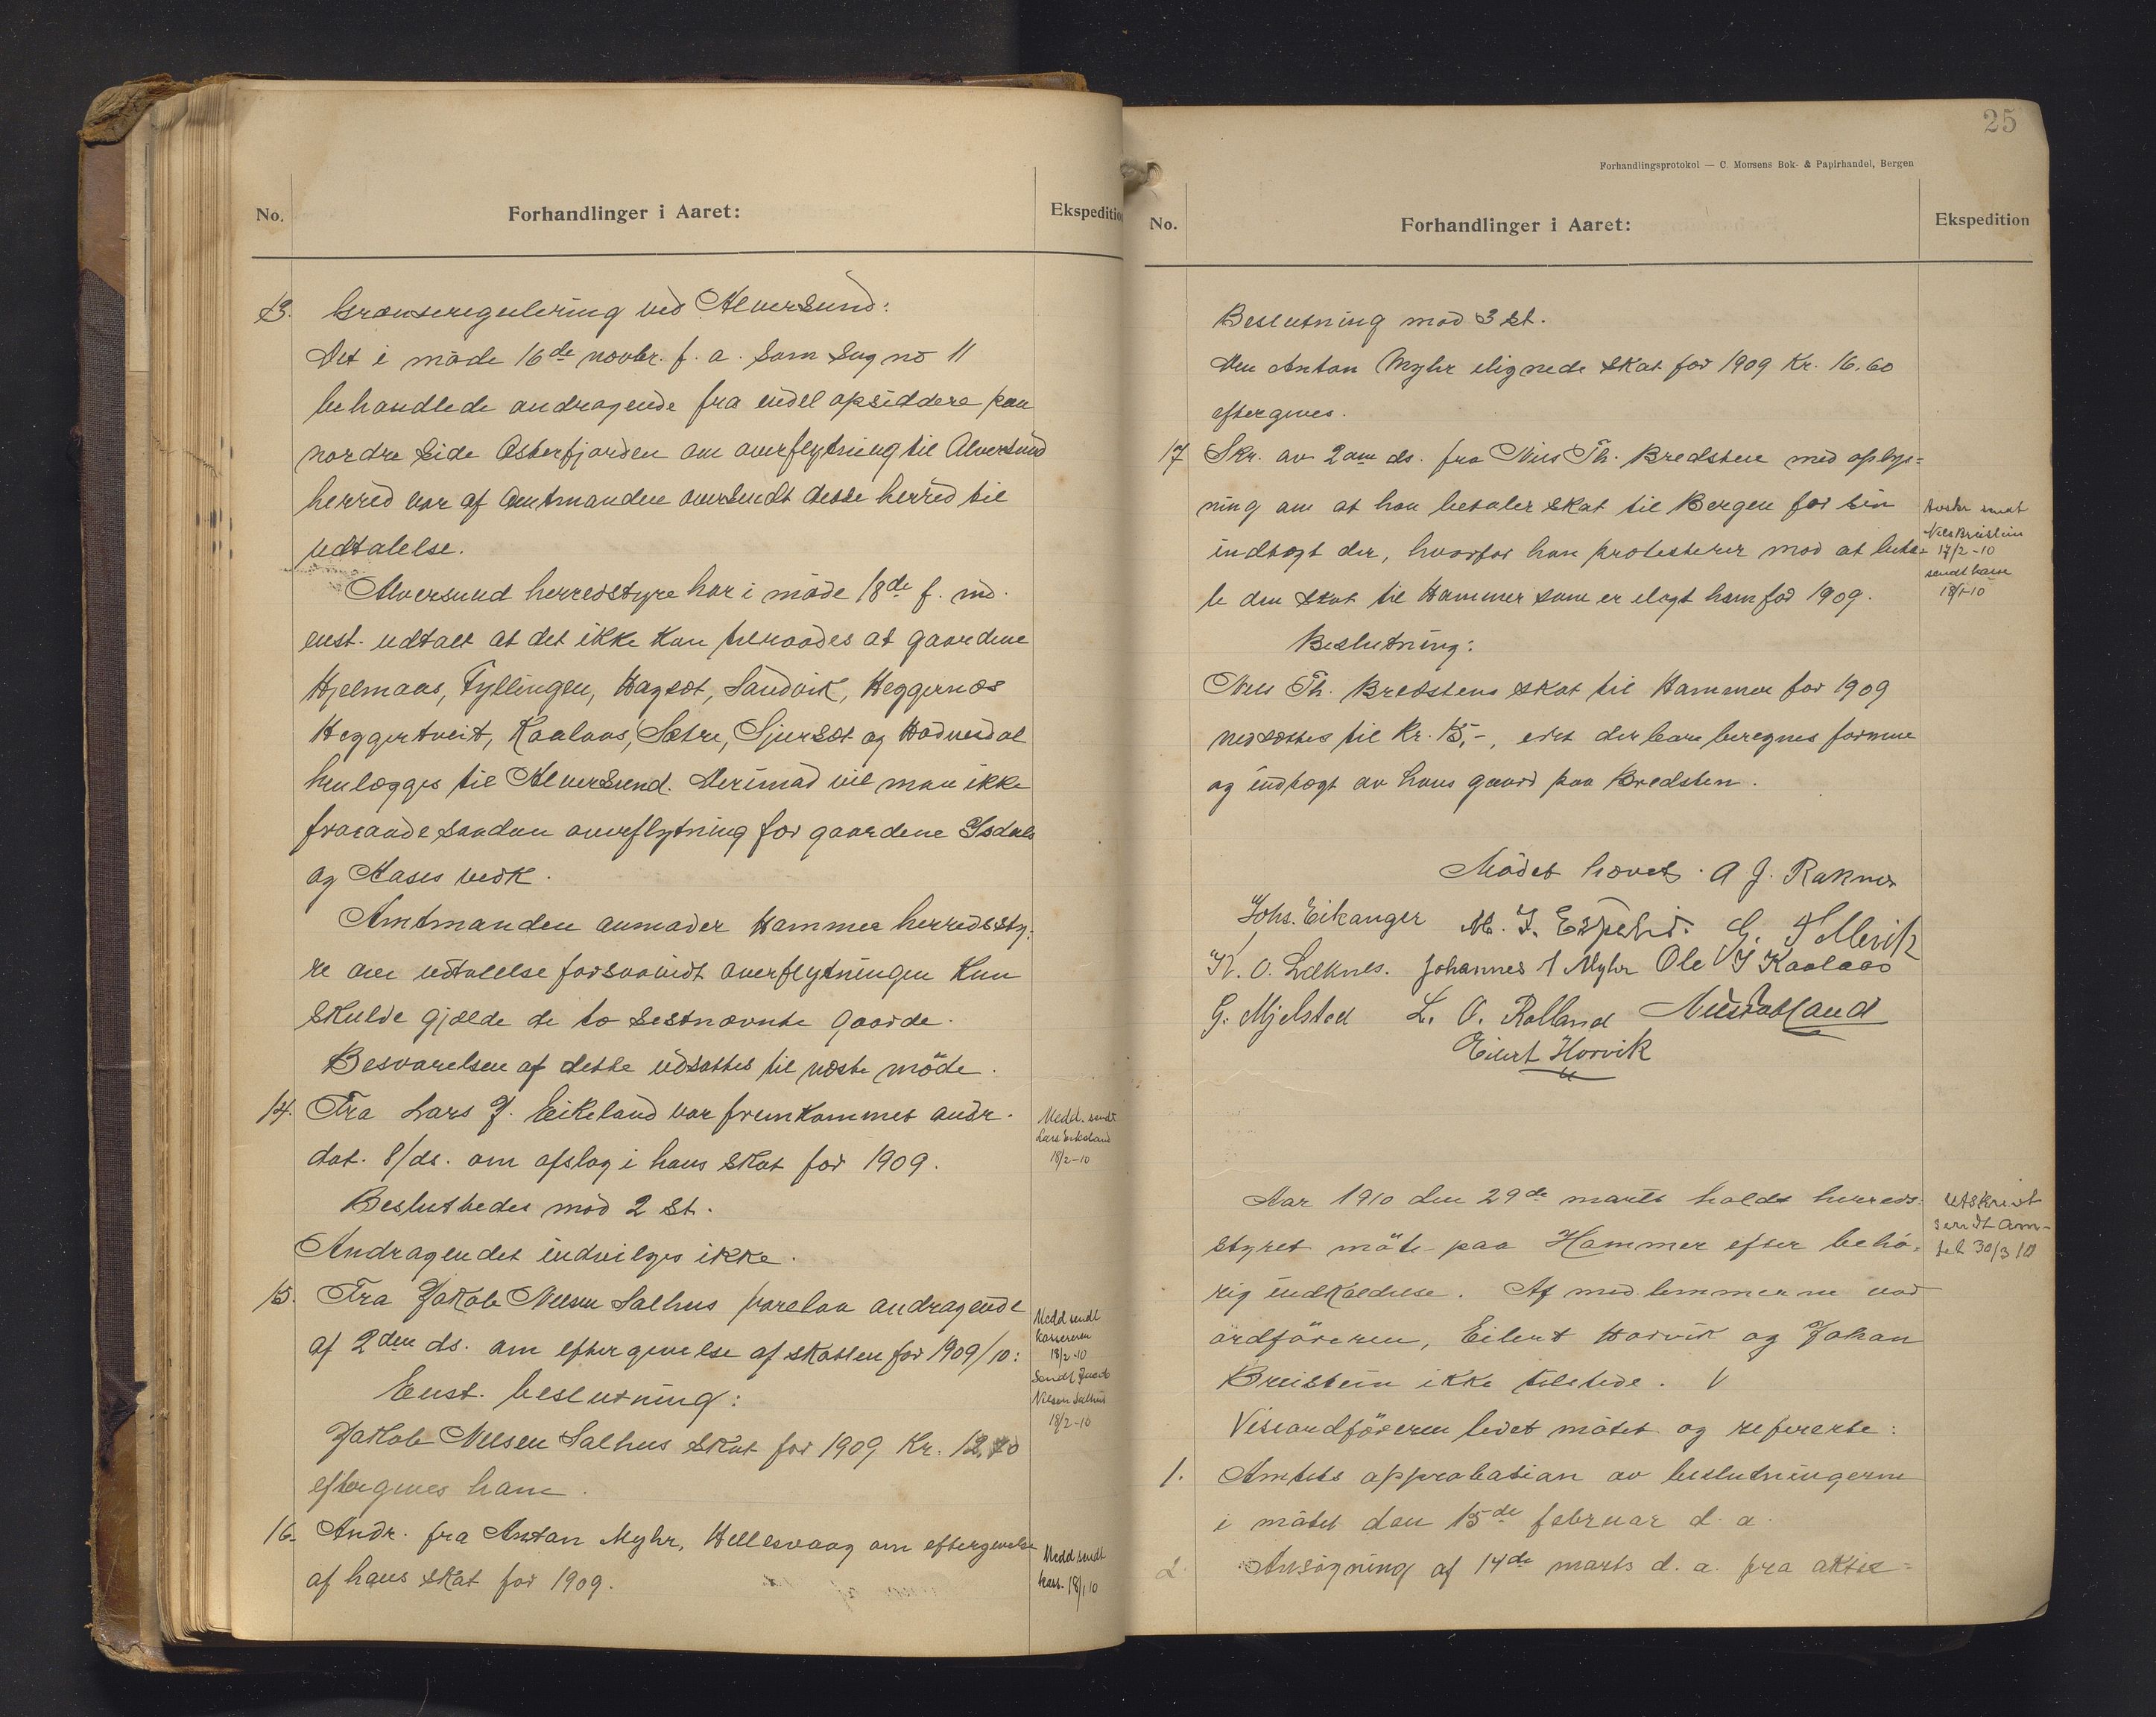 No.
Forhandlinger i Aaret:
Ekspedition
13. Grænseregulering ved Alversund:
Det i møde 16de novbr. f. a. som sag no 11
behandlede andragende fra endel opsiddere paa
nordre side Osterfjorden om overflytning til Alversund
herred var af Amtmanden oversendt dette herred til
udtalelse.
Alversund herredstyre har i møde 18de f. md.
enst. udtalt at det ikke kan tilraades at gaardene
Hjelmaas, Fyllingen, Hagset, Sandvik, Heggernæs
Heggertveit, Kaalaas, Sætre, Gjerset og Hodnedal
henlægges til Alversund. Derimod vil man ikke
fraraade saadan overflytning for gaardene Isdals
og Aases vedk.
Amtmanden anmoder Hammer herredssty-
re om udtalelse forsaavidt overflytningen kun
skulde gjælde de to sestnævnte gaarde.
Besvarelsen af dette udsattes til næste møde.
14. Fra Lars J. Eikeland var fremkommet andr.
dat. 8/ds. om afslag i hans skat for 1909.
Besluttedes mod 2 st.
Andragendet indvilges ikke.
Medd. sendt
Lars Eikeland
18/2-10
15. Fra Jakob Nilsen Salhus forelaa andragende
af 2den ds. om eftergivelse af skatten for 1909/10:
Enst. beslutning:
Jakob Nilsen Salhus skat for 1909 Kr. 12,70
eftergives ham.
Medd sendt
kassereren
18/2-10
Sendt Jacob
Nilsen Salhus
18/2-10
16. Andr. fra Anton Myhr, Hellesvaag om eftergivelse
af hans skat for 1909.
Medd sendt
kass. 18/1 10
25
Forhandlingsprotokol — C. Monsens Bok- & Papirhandel, Bergen
No.
Forhandlinger i Aaret:
Ekspedition
Beslutning mod 3 st.
Den Anton Myhr ilignede skat for 1909 Kr. 16,60
eftergives.
17 Skr. av 2den ds. fra Nils Th. Bredsten med oplys-
ning om at han betaler skat til Bergen for sin
indtægt der, hvorfor han protesterer mod at beta-
le den skat til Hammer som er ilagt ham for 1909.
Beslutning:
Nils Th. Bredstens skat til Hammer for 1909
nedsættes til Kr. 15,-, idet der bare beregnes formue
og indtægt av hans gaard paa Bredsten.
sendt
Nils Breistein
17/2-10
sendt kasse
18/1-10
Mødet hævet. A J. Raknes
Johs. Eikanger M. J. Espelid. G. Tellevik
K. O. Leknes. Johannes A Myhr Ole J Kaalaas
G. Mjelstad L. O. Rolland Nils Dalland
Eilert Horvik
Aar 1910 den 29de marts holdt herreds-
styret møte paa Hammer efter behø-
rig indkaldelse. Af medlemmerne var
ordføreren, Eilert Horvik og Johan
Breistein ikke tilstede. V
Viseordføreren ledet møtet og refererte:
Utskrivt
sendt am-
tet 30/3 10
1. Amtets approbation av beslutningerne
i møtet den 15de februar d. a.
2. Ansøgning af 14de marts d. a. fra aktie-